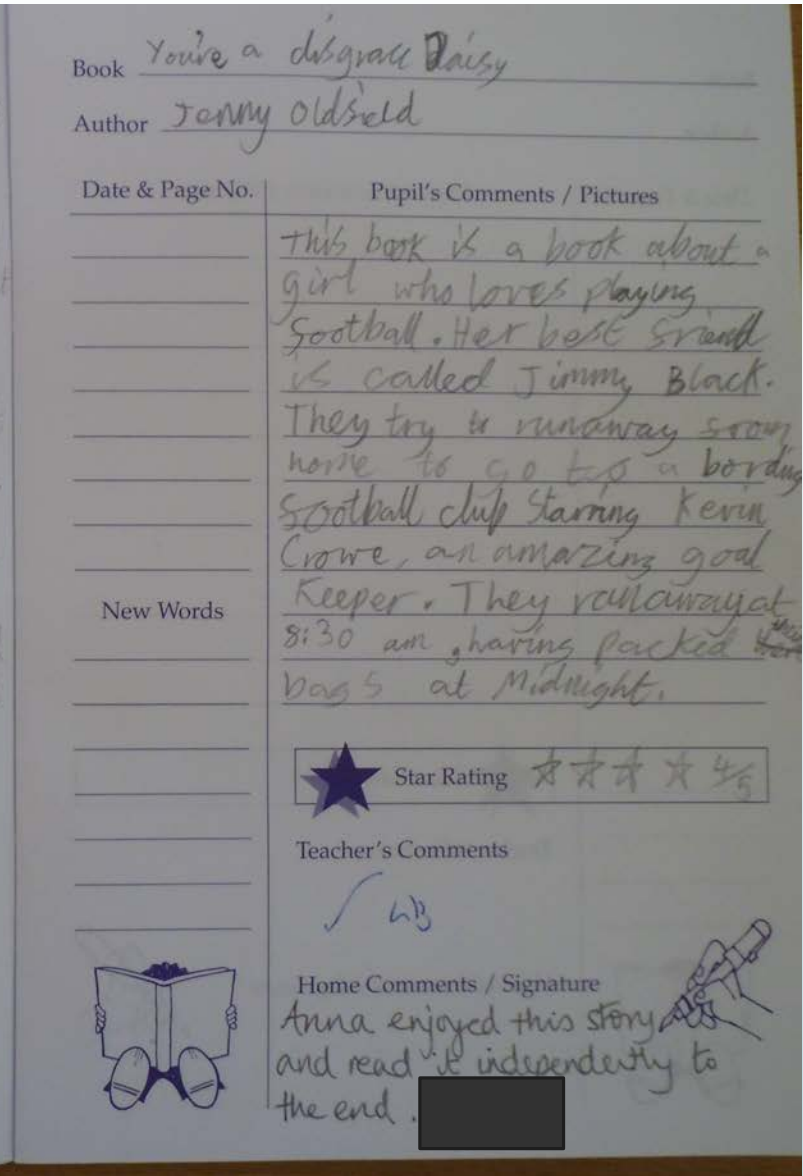 Book You're a disgrace Daisy
Author Jenny Oldfield
Date & Page No. Pupil's Comments / Pictures
This book is a book about a
girl who loves playing
football. Her best friend
is called Jimmy Black.
They try to runaway from
home to go to a bording
football club starring Kevin
Crowe, an amazing goal
Keeper. They runaway at
8:30 am, having packed their
bags at Midnight.
New Words
Star Rating 4/5
Teacher's Comments
Home Comments / Signature
Anna enjoyed this story
and read it independently to
the end.